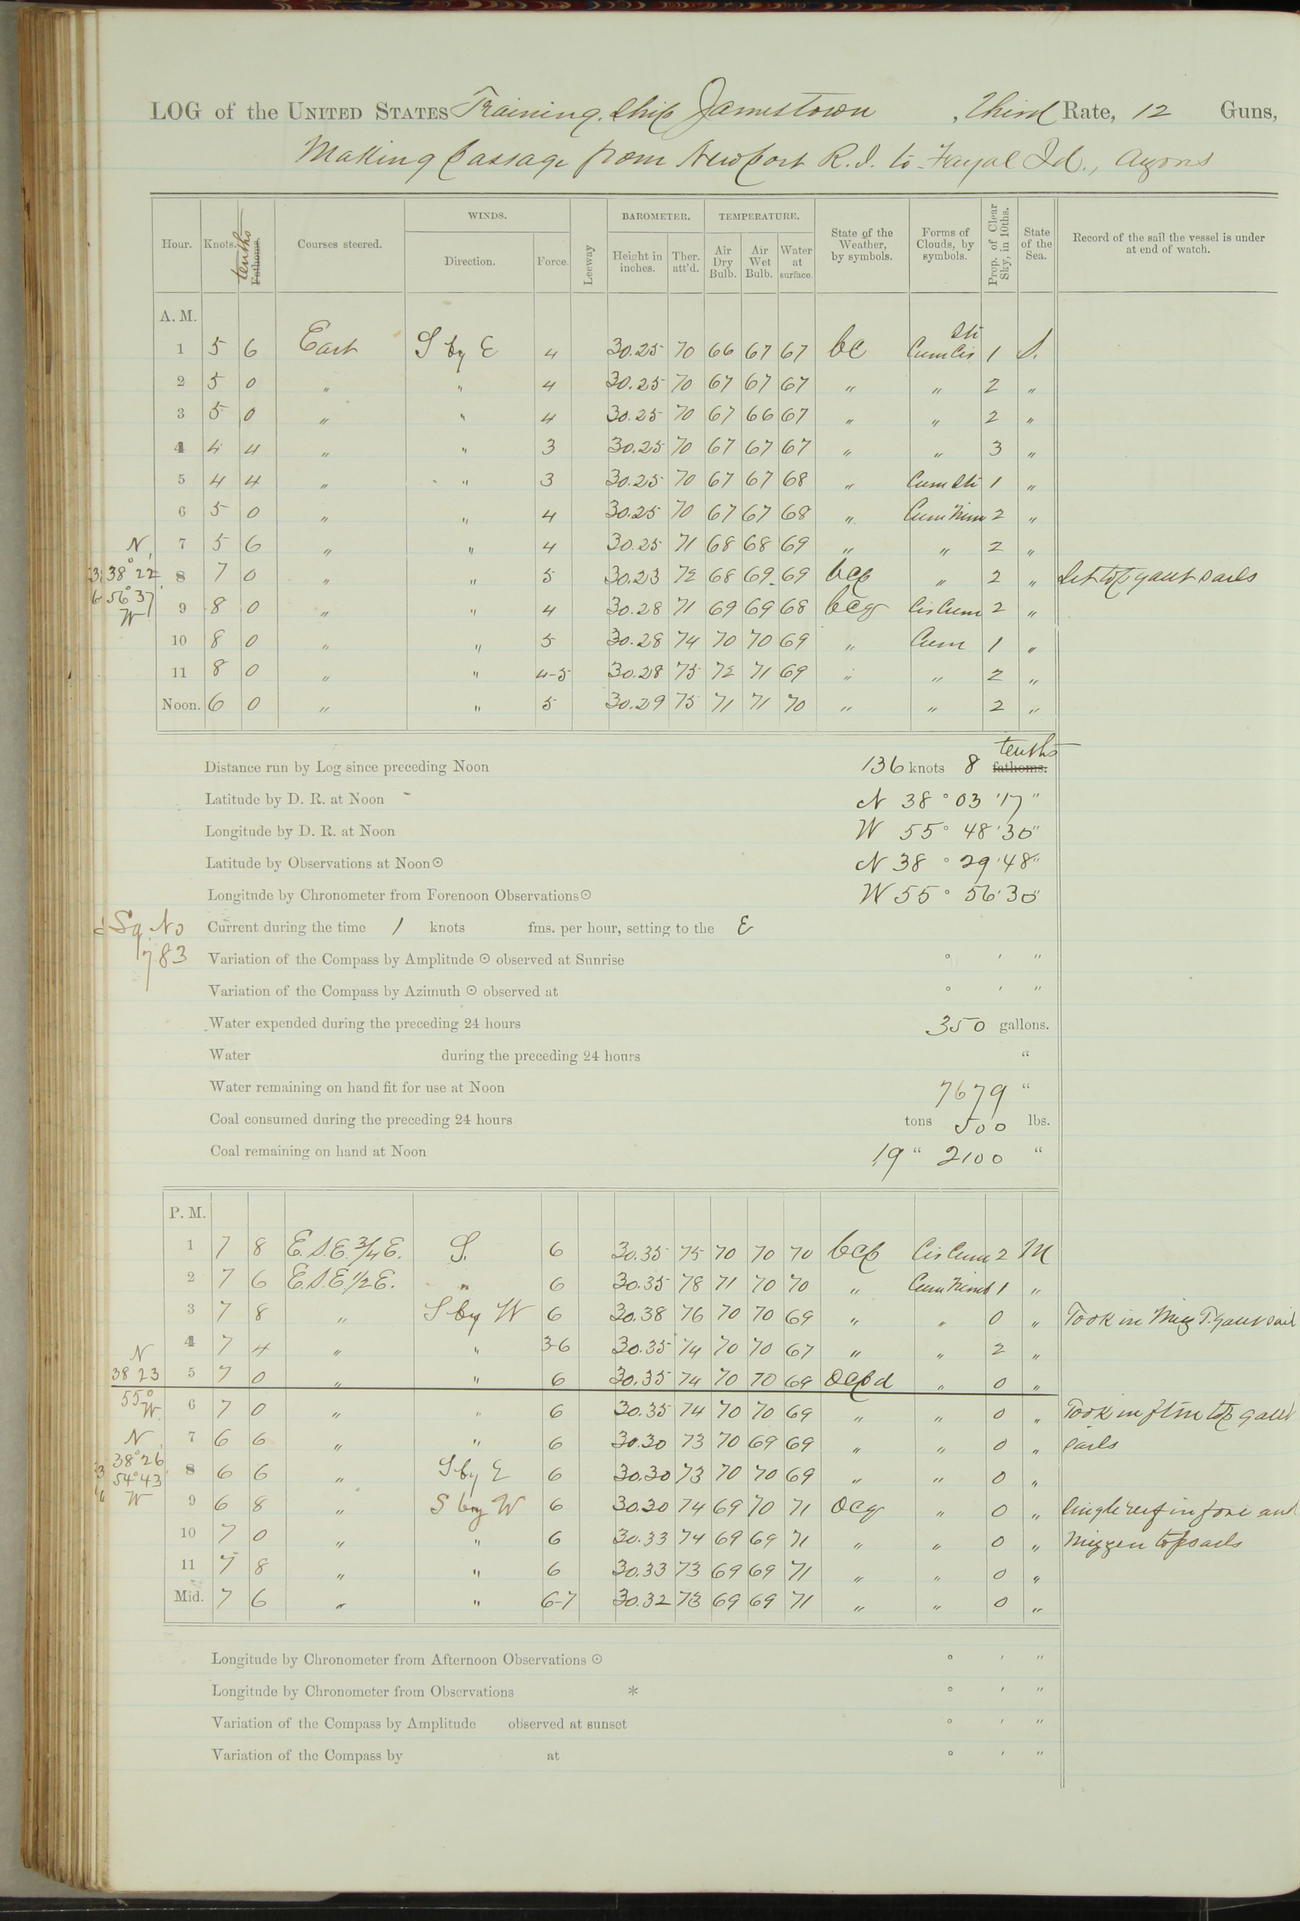 LOG of the UNITED STATES Training Ship Jamestown, Third Rate, 12 Guns,
Making passage from Newport R.I. to Fayal Id., Azores
Hour. Knots. tenths Fathoms. Courses steered. WINDS. Direction. Force. Leeway BAROMETER. Height in inches. Ther. att'd. TEMPERATURE. Air Dry Bulb. Air Wet Bulb. Water at surface. State of the Weather, by symbols. Forms of Clouds, by symbols. Prop. of Clear Sky, in 10ths. State of the Sea. Record of the sail the vessel is under at end of watch.
A. M.
1 5 6 East S by E 4 30.25 70 66 67 67 bc Cum Cis Sti 1 S.
2 5 0 " " 4 30.25 70 67 67 67 " " 2 "
3 5 0 " " 4 30.25 70 67 66 67 " " 2 "
4 4 4 " " 3 30.25 70 67 67 67 " " 3 "
5 4 4 " " 3 30.25 70 67 67 68 " Cum Sti 1 "
6 5 0 " " 4 30.25 70 67 67 68 " Cum Nim 2 "
N 7 5 6 " " 4 30.25 71 68 68 69 " " 2 "
38° 22' 8 7 0 " " 5 30.23 72 68 69 69 bcp " 2 " Set top gaut sails
56° 37' W 9 8 0 " " 4 30.28 71 69 69 68 bcq Cis Cum 2 "
10 8 0 " " 5 30.28 74 70 70 69 " Cum 1 "
11 8 0 " " 4-5 30.28 75 72 71 69 " " 2 "
Noon. 6 0 " " 5 30.29 75 71 71 70 " " 2 "
Distance run by Log since preceding Noon 136 knots 8 tenths fathoms.
Latitude by D. R. at Noon N 38° 03' 17"
Longitude by D. R. at Noon W 55° 48' 30"
Latitude by Observations at Noon ⊙ N 38° 29' 48"
Longitude by Chronometer from Forenoon Observations ⊙ W 55° 56' 30"
Sq. No 783
Current during the time 1 knots fms. per hour, setting to the E
Variation of the Compass by Amplitude ⊙ observed at Sunrise ° ' "
Variation of the Compass by Azimuth ⊙ observed at ° ' "
Water expended during the preceding 24 hours 350 gallons.
Water during the preceding 24 hours "
Water remaining on hand fit for use at Noon 7679 "
Coal consumed during the preceding 24 hours tons 500 lbs.
Coal remaining on hand at Noon 19 " 2100 "
P. M.
1 7 8 E.S.E. 3/4 E. S. 6 30.35 75 70 70 70 bcp Cis Cum 2 M
2 7 6 E.S.E 1/2 E. " 6 30.35 78 71 70 70 " Cum Nimb 1 "
3 7 8 " S by W 6 30.38 76 70 70 69 " " 0 " Took in Miz T. gaut sail
N 4 7 4 " " 3-6 30.35 74 70 70 67 " " 2 "
38 23 5 7 0 " " 6 30.35 74 70 70 69 ocpd " 0 "
55° W. 6 7 0 " " 6 30.35 74 70 70 69 " " 0 " Took in f & m top gaut
N 7 6 6 " " 6 30.30 73 70 69 69 " " 0 " sails
38° 26' 54° 43' 8 6 6 " S by E 6 30.30 73 70 70 69 " " 0 "
W 9 6 8 " S by W 6 30.30 74 69 70 71 ocq " 0 " Single reef in fore and
10 7 0 " " 6 30.33 74 69 69 71 " " 0 " mizzen topsails
11 7 8 " " 6 30.33 73 69 69 71 " " 0 "
Mid. 7 6 " " 6-7 30.32 73 69 69 71 " " 0 "
Longitude by Chronometer from Afternoon Observations ⊙ ° ' "
Longitude by Chronometer from Observations * ° ' "
Variation of the Compass by Amplitude observed at sunset ° ' "
Variation of the Compass by at ° ' "